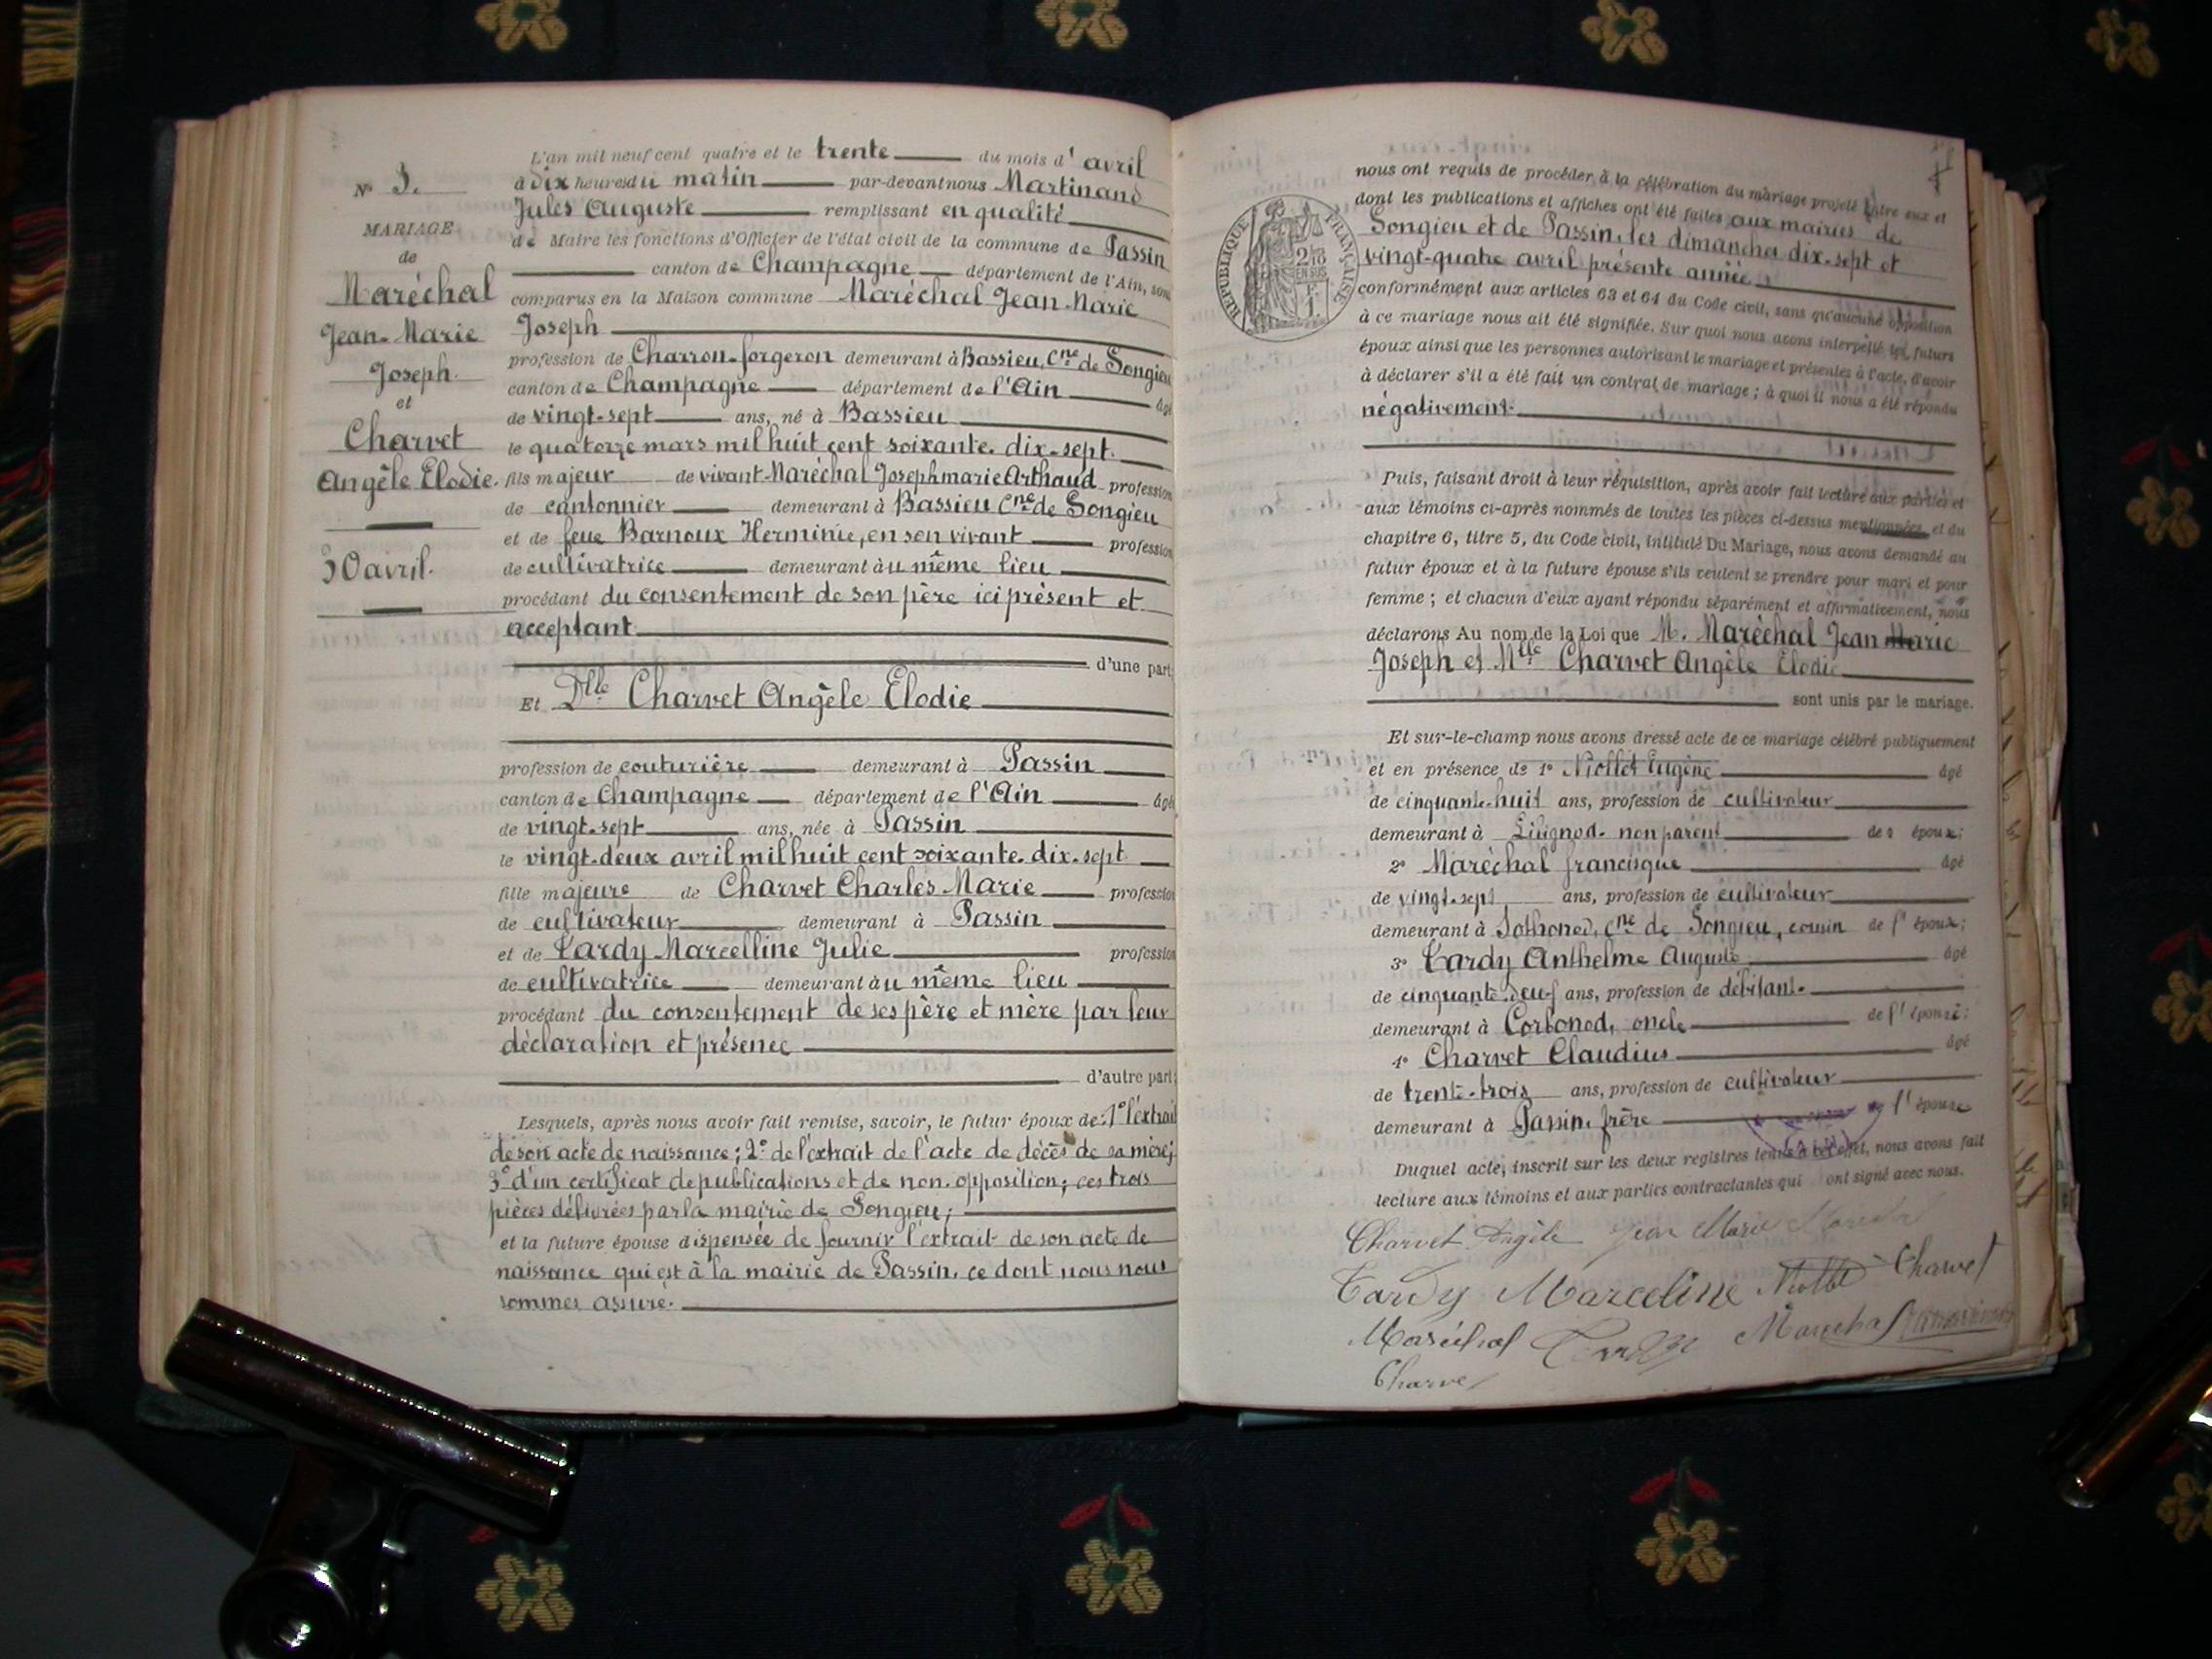 N° 3.
MARIAGE
de
Maréchal
Jean-Marie
Joseph
et
Charvet
Angèle Elodie.
30 avril.
L'an mil neuf cent quatre et le trente du mois d'avril
à dix heures du matin par-devant nous Martinand
Jules Auguste remplissant en qualité
de Maire les fonctions d'Officier de l'état civil de la commune de Passin
canton de Champagne département de l'Ain, sont
comparus en la Maison commune Maréchal Jean-Marie
Joseph
profession de Charron-forgeron demeurant à Bassieu, Cne de Songieu
canton de Champagne département de l'Ain âgé
de vingt-sept ans, né à Bassieu
le quatorze mars mil huit cent soixante-dix-sept.
fils majeur de vivant Maréchal Joseph marie Arthaud profession
de cantonnier demeurant à Bassieu Cne de Songieu
et de feue Barnoux Herminie, en son vivant profession
de cultivatrice demeurant au même lieu
procédant du consentement de son père ici présent et
acceptant
d'une part
Et Dlle Charvet Angèle Elodie
profession de couturière demeurant à Passin
canton de Champagne département de l'Ain âgé
de vingt-sept ans, née à Passin
le vingt-deux avril mil huit cent soixante-dix-sept
fille majeure de Charvet Charles Marie profession
de cultivateur demeurant à Passin
et de Tardy Marcelline Julie profession
de cultivatrice demeurant au même lieu
procédant du consentement de ses père et mère par leur
déclaration et présence
d'autre part;
Lesquels, après nous avoir fait remise, savoir, le futur époux de: 1° l'extrait
de son acte de naissance; 2° de l'extrait de l'acte de décès de sa mère;
3° d'un certificat de publications et de non-opposition; ces trois
pièces délivrées par la mairie de Songieu;
et la future épouse dispensée de fournir l'extrait de son acte de
naissance qui est à la mairie de Passin, ce dont nous nous
sommes assuré.
RÉPUBLIQUE FRANÇAISE
2/10 EN SUS
nous ont requis de procéder à la célébration du mariage projeté entre eux et
dont les publications et affiches ont été faites aux mairies de
Songieu et de Passin, les dimanches dix-sept et
vingt-quatre avril présente année
conformément aux articles 63 et 64 du Code civil, sans qu'aucune opposition
à ce mariage nous ait été signifiée. Sur quoi nous avons interpellé les futurs
époux ainsi que les personnes autorisant le mariage et présentes à l'acte, d'avoir
à déclarer s'il a été fait un contrat de mariage; à quoi il nous a été répondu
négativement.
Puis, faisant droit à leur réquisition, après avoir fait lecture aux parties et
aux témoins ci-après nommés de toutes les pièces ci-dessus mentionnées et du
chapitre 6, titre 5, du Code civil, intitulé Du Mariage, nous avons demandé au
futur époux et à la future épouse s'ils veulent se prendre pour mari et pour
femme; et chacun d'eux ayant répondu séparément et affirmativement, nous
déclarons Au nom de la Loi que M. Maréchal Jean Marie
Joseph et Mlle Charvet Angèle Elodie
sont unis par le mariage.
Et sur-le-champ nous avons dressé acte de ce mariage célébré publiquement
et en présence de 1° Niollet Eugène âgé
de cinquante-huit ans, profession de cultivateur
demeurant à non parent des époux;
2° Maréchal francisque âgé
de vingt-sept ans, profession de cultivateur
demeurant à Sothonod, Cne de Songieu, cousin de l'époux;
3° Tardy Anthelme Auguste âgé
de cinquante-neuf ans, profession de débitant
demeurant à Corbonod, oncle de l'épouse;
4° Charvet Claudius âgé
de trente-trois ans, profession de cultivateur
demeurant à Passin, frère de l'épouse
Duquel acte, inscrit sur les deux registres tenus à cet effet, nous avons fait
lecture aux témoins et aux parties contractantes qui ont signé avec nous.
Charvet Angèle Jean Marie Maréchal
Tardy Marceline Niollet Charvet
Maréchal Tardy Marechal
Charvet